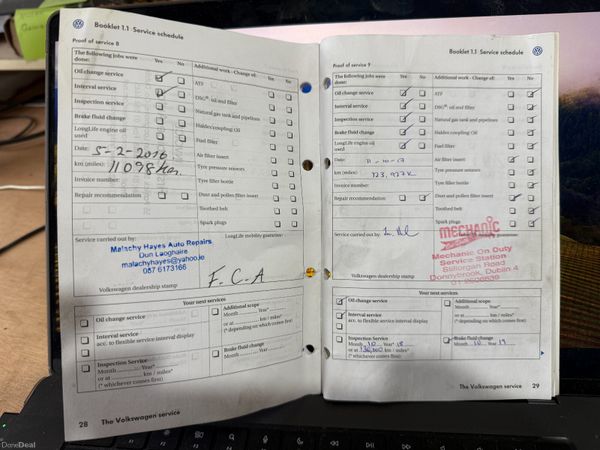 Booklet 1.1 Service schedule
Proof of service 8
The following jobs were done:
Yes
No
Additional work - Change of:
Yes
No
Oil change service
ATF
Interval service
DSG®: oil and filter
Inspection service
Natural gas tank and pipelines
Brake fluid change
Haldex coupling: Oil
LongLife engine oil used
Fuel filter
Date: 5-2-2016
Air filter insert
km (miles):
Tyre pressure sensors
Invoice number:
Tyre filler bottle
Repair recommendation
Dust and pollen filter insert
Toothed belt
Spark plugs
Service carried out by:
LongLife mobility guarantee:
Malachy Hayes Auto Repairs
Dun Laoghaire
malachyhayes@yahoo.ie
087 6173166
F.C.A
Volkswagen dealership stamp
Your next services
Oil change service
Additional scope
Month Year
Interval service
acc. to flexible service interval display
or at km / miles*
(* depending on which comes first)
Inspection Service
Month Year*
or at km / miles*
(* whichever comes first)
Brake fluid change
Month Year
28 The Volkswagen service
Booklet 1.1 Service schedule
Proof of service 9
The following jobs were done:
Yes
No
Additional work - Change of:
Yes
No
Oil change service
ATF
Interval service
DSG®: oil and filter
Inspection service
Natural gas tank and pipelines
Brake fluid change
Haldex coupling: Oil
LongLife engine oil used
Fuel filter
Date: 11-10-17
Air filter insert
km (miles): 123,927K
Tyre pressure sensors
Invoice number:
Tyre filler bottle
Repair recommendation
Dust and pollen filter insert
Toothed belt
Spark plugs
Service carried out by:
MECHANIC
Mechanic On Duty
Service Station
Stillorgan Road
Donnybrook, Dublin 4
Volkswagen dealership stamp
Your next services
Oil change service
Additional scope
Month Year
Interval service
acc. to flexible service interval display
or at km / miles*
(* depending on which comes first)
Inspection Service
Month 10 Year* 18
or at 136,000 km / miles*
(* whichever comes first)
Brake fluid change
Month 10 Year 19
The Volkswagen service 29
DoneDeal